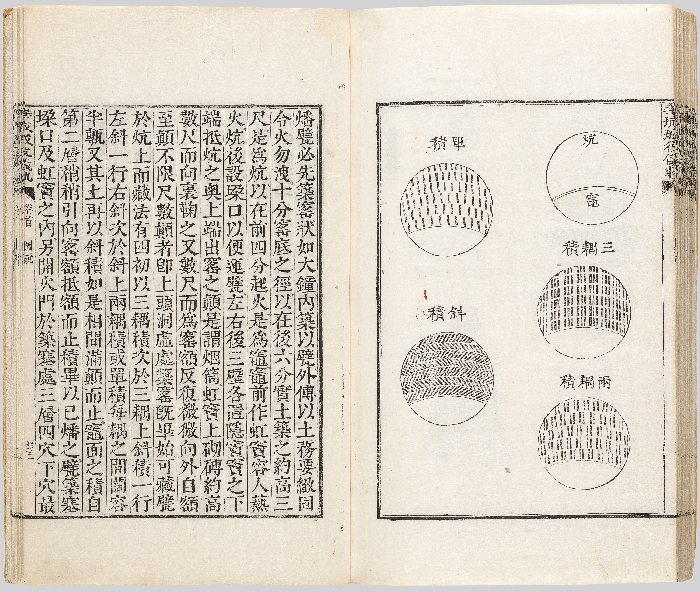 炕
窰
三耦積
兩耦積
單積
斜積
燔甓必先築窰狀如大鐘內築以甓外傅以土務要緻固
令火勿洩十分窰底之徑以在後六分實土築之約高三
尺是爲炕以在前四分起火是爲竈竈前作虹竇容人爇
火炕後設梁口以便運甓左右後三壁各置隱竇竇之下
端抵炕之奧上端出窰之顚是謂烟筩虹竇上砌磚約高
數尺而向裏鞠之又數尺而爲窰額反復微微向外自額
至顚不限尺數顚者卽上頭洞虛處築窰旣畢始可藏甓
於炕上而藏法有四初以三耦積次於三耦上斜積一行
左斜一行右斜次於斜上兩耦積或單積每耦之間闊容
半甎又其上再以斜積如是相間滿顚而止竈面之積自
第二層稍稍引向窰額抵額而止積畢以已燔之甓築塞
梁口及虹竇之內另開火門於築塞處三層四穴下穴最